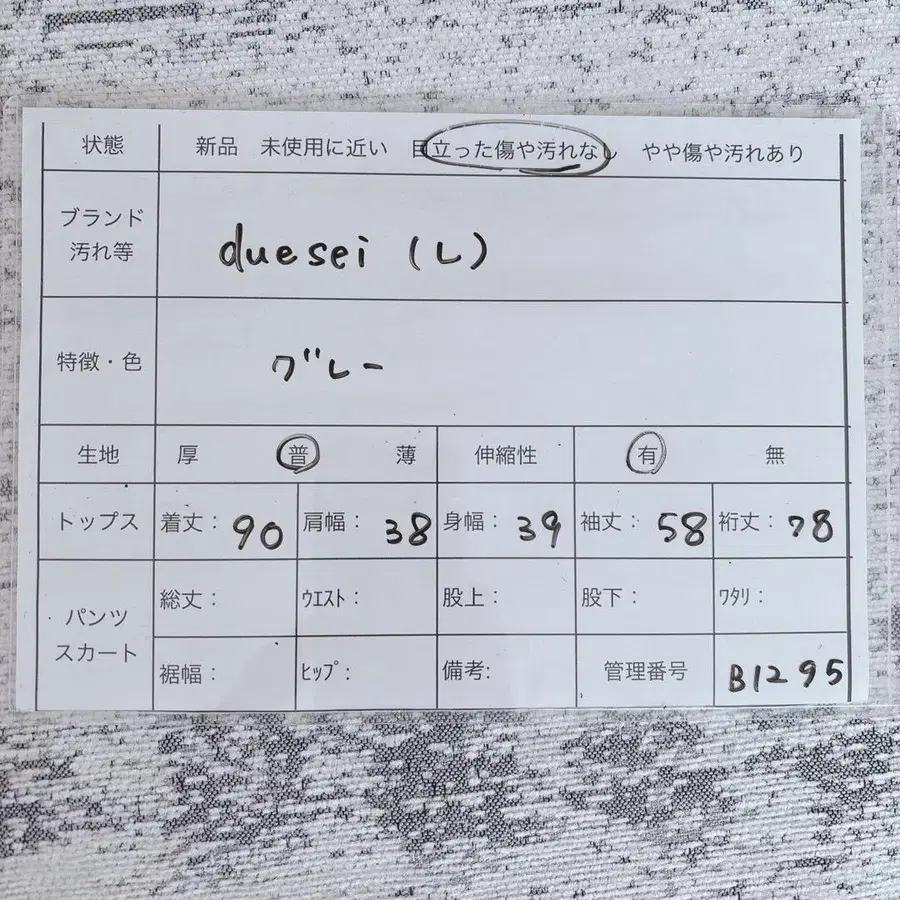 状態 新品 未使用に近い 目立った傷や汚れなし やや傷や汚れあり
ブランド
汚れ等
duesei (L)
特徴・色 グレー
生地 厚 普 薄 伸縮性 有 無
トップス 着丈: 90 肩幅: 38 身幅: 39 袖丈: 58 裄丈: 78
パンツ
スカート
総丈: ウエスト: 股上: 股下: ワタリ:
裾幅: ヒップ: 備考: 管理番号 B1295